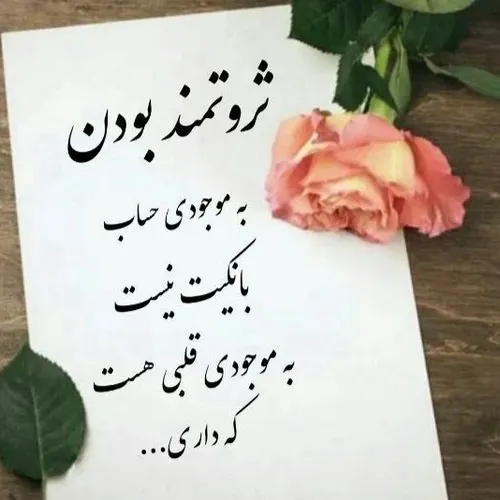 ثروتمند بودن
به موجودی حساب
بانکیت نیست
به موجودی قلبی هست
که داری...